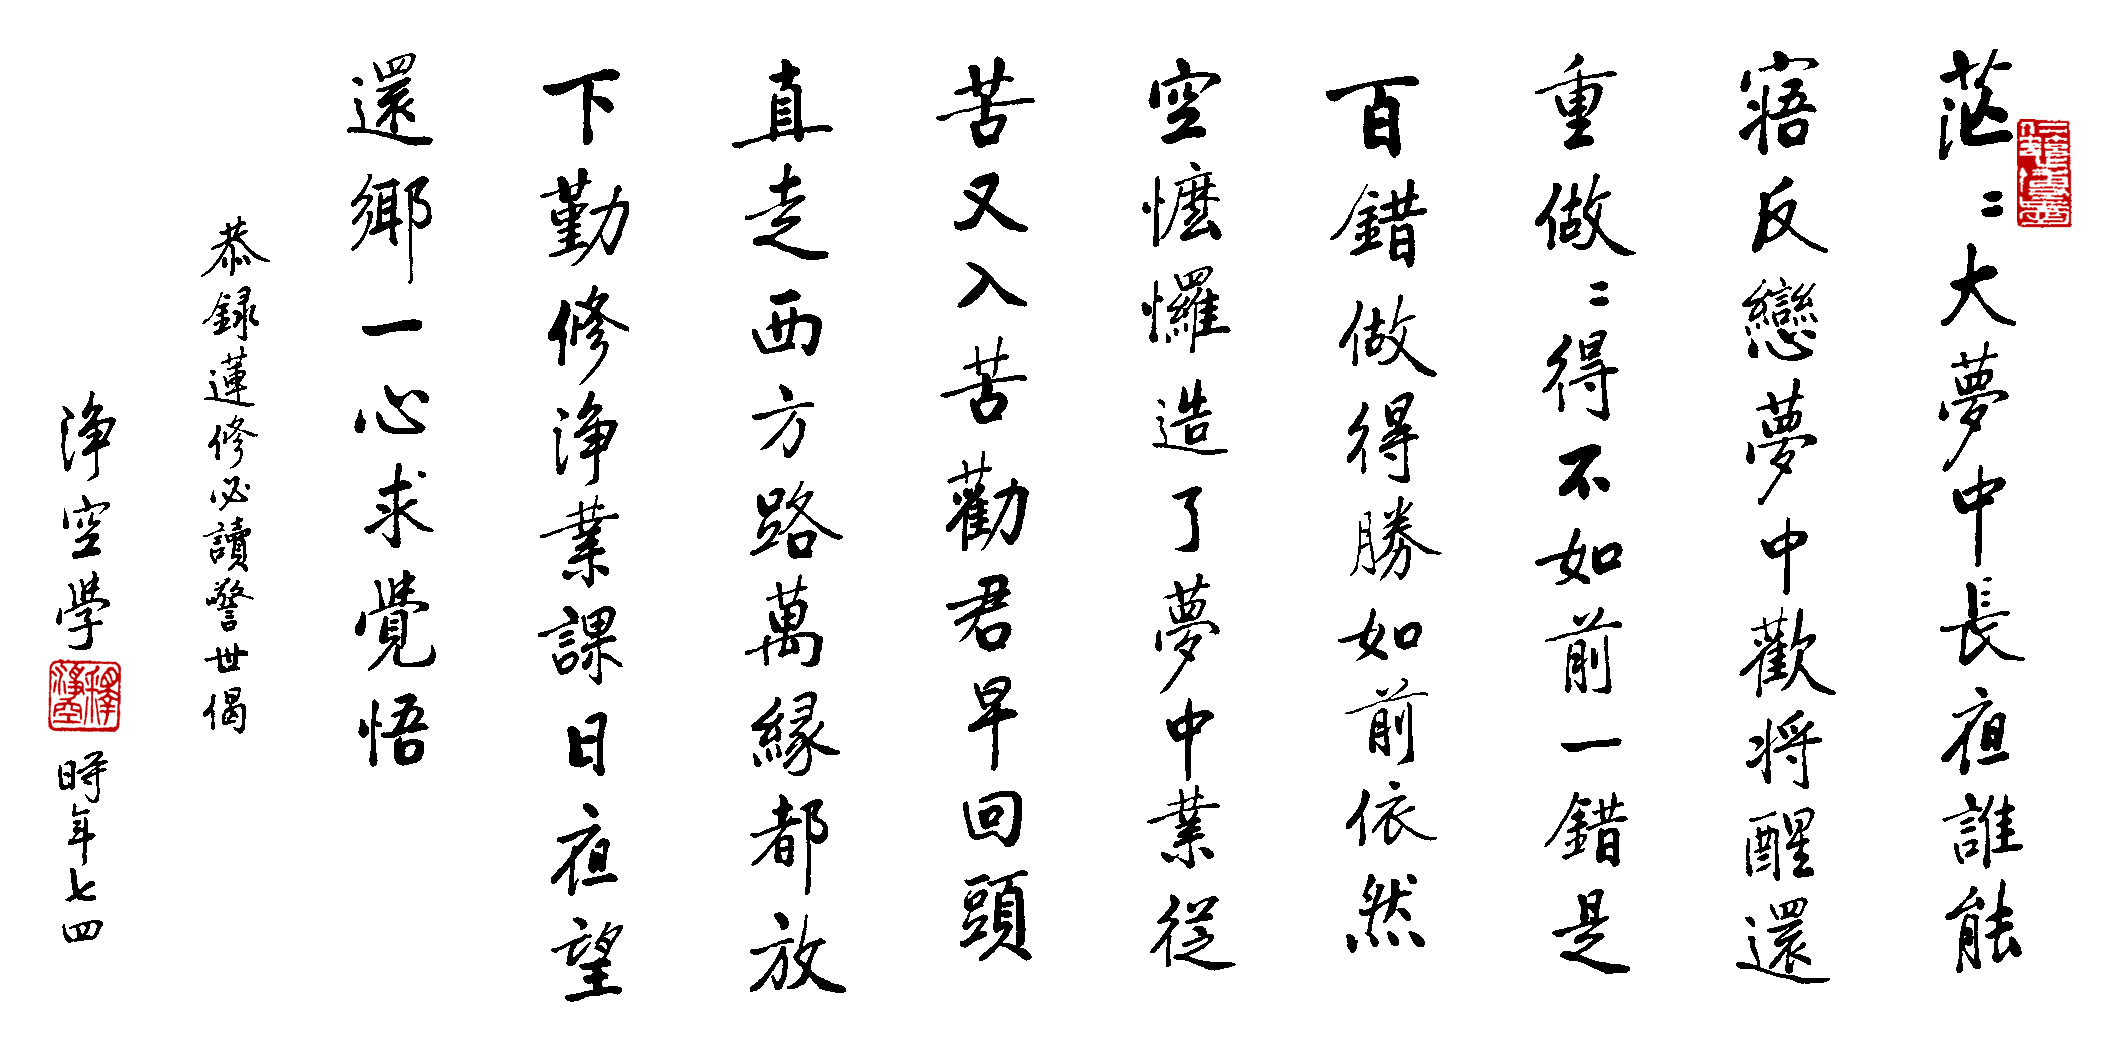 茫〻大夢中長夜誰能
寤反戀夢中歡將醒還
重做〻得不如前一錯是
百錯做得勝如前依然
空懡㦬造了夢中業從
苦又入苦勸君早回頭
直走西方路萬緣都放
下勤修淨業課日夜望
還鄉一心求覺悟
恭録蓮修必讀警世偈
淨空学
釋淨空
時年七四